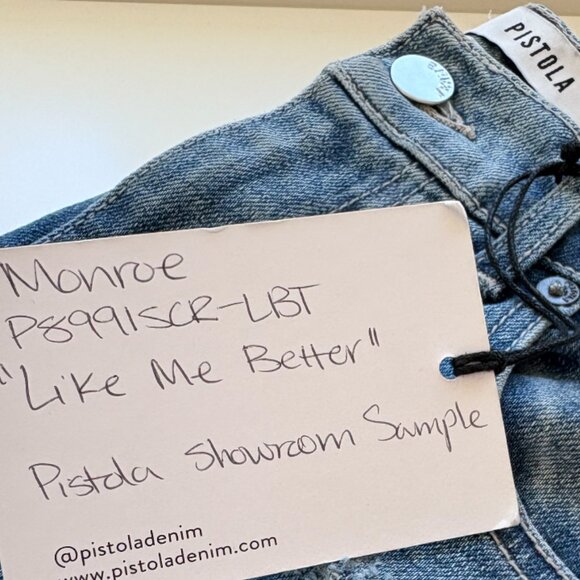 PISTOLA
Monroe
P8991SCR-LBT
"Like Me Better"
Pistola Showroom Sample
@pistoladenim
www.pistoladenim.com